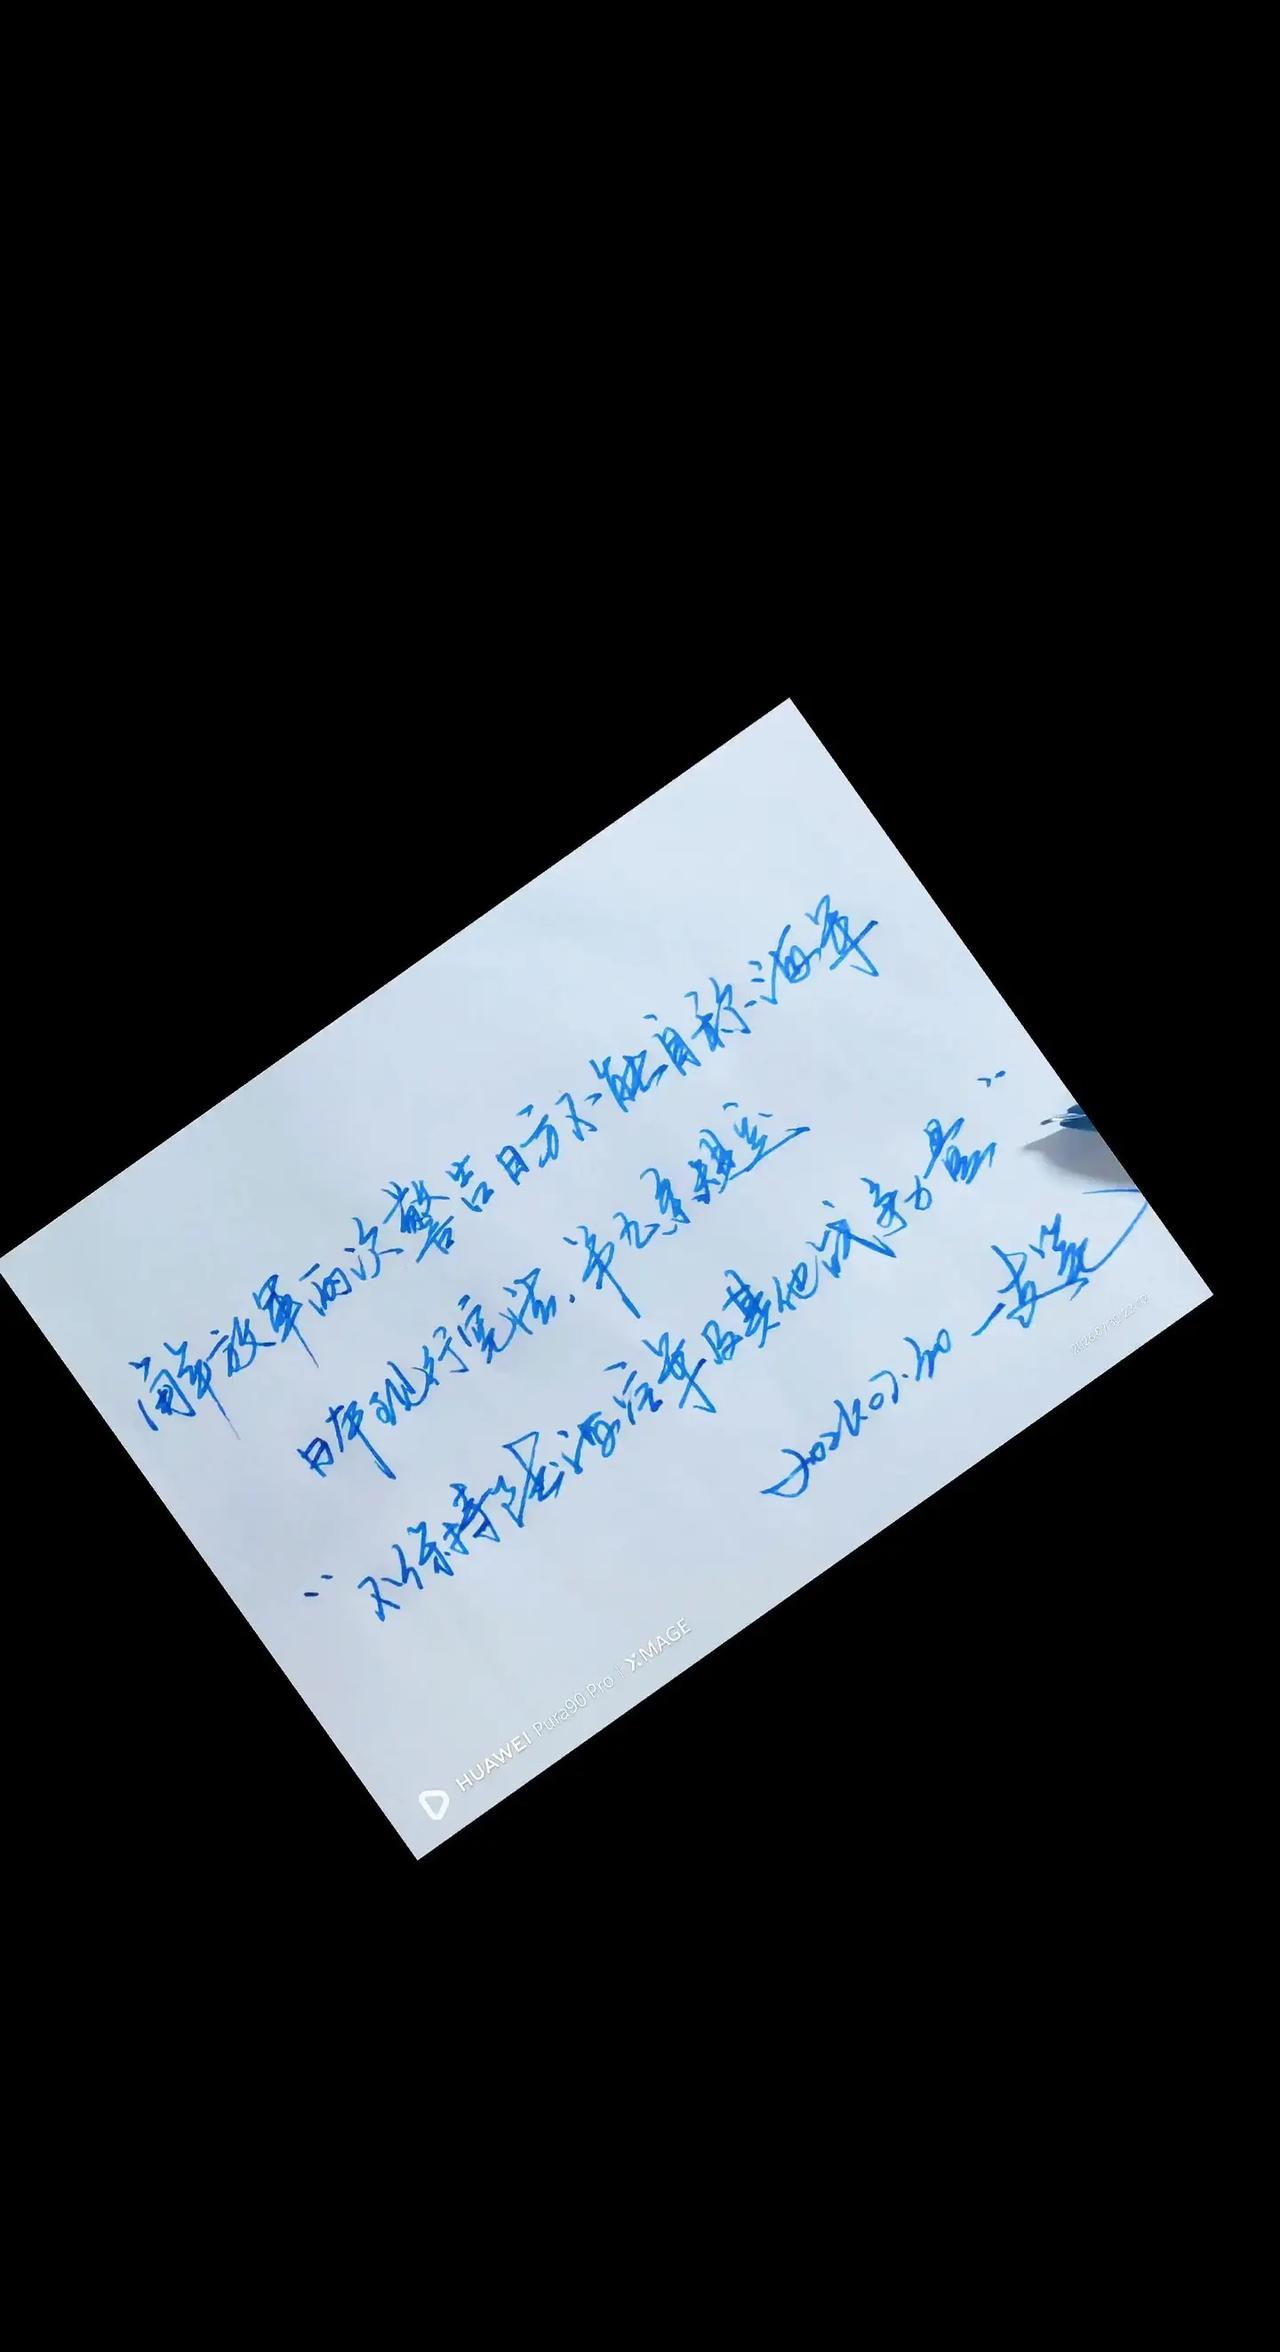 闻解放军两次警告日方不能自称海军
日本现行宪法.第九条规定
"不保持陆海空军及其他战争力量"
2026.07.30
HUAWEI Pura90 Pro | XMAGE